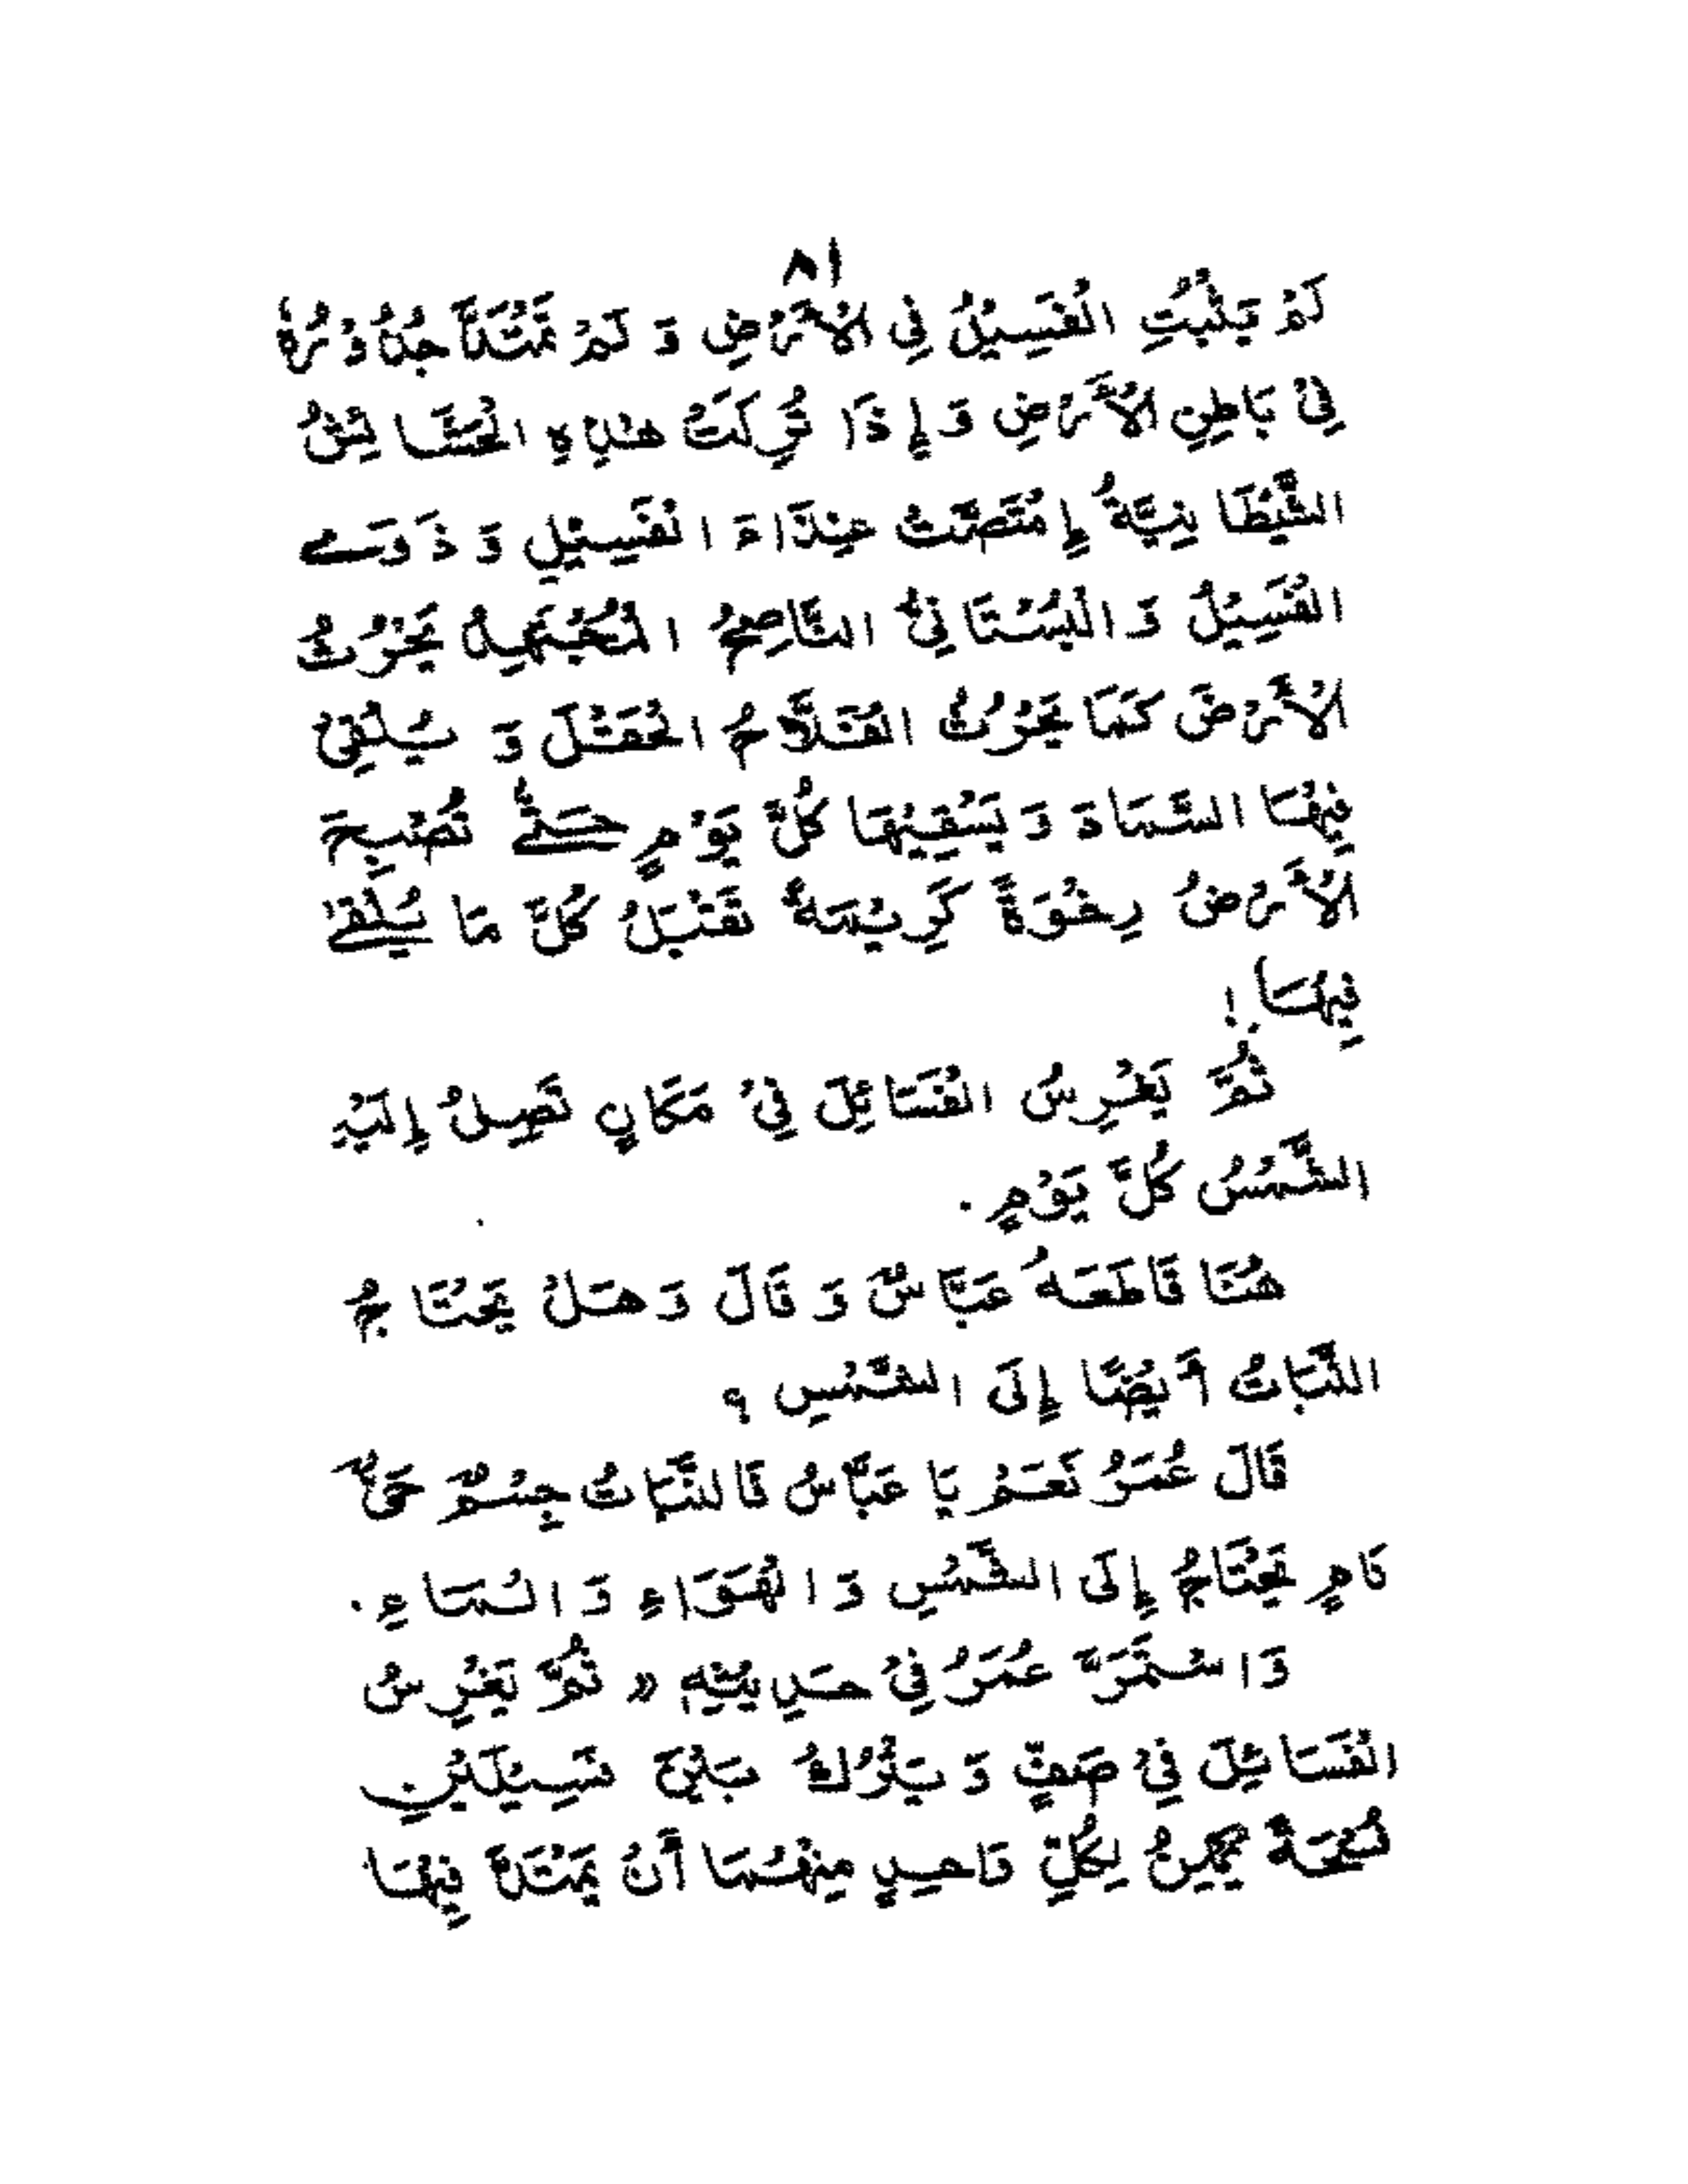 ٨١
لَمْ يَنْبُتِ الْفَسِيْلُ فِي الْأَرْضِ وَ لَمْ تَمْتَدَّ جُذُوْرُهٗ
فِيْ بَاطِنِ الْأَرْضِ وَ إِذَا تُرِكَتْ هٰذِهِ الْحَشَائِشُ
الشَّيْطَانِيَّةُ إِمْتَصَّتْ غِذَاءَ الْفَسِيْلِ وَ ذَوٰى
الْفَسِيْلُ وَ الْبُسْتَانِيُّ النَّاصِحُ الْمُجْتَهِدُ يَحْرُثُ
الْأَرْضَ كَمَا يَحْرُثُ الْفَلَّاحُ الْحَقْلَ وَ يُلْقِيْ
فِيْهَا السَّمَادَ وَ يَسْقِيْهَا كُلَّ يَوْمٍ حَتّٰى تُصْبِحَ
الْأَرْضُ رِخْوَةً كَرِيْمَةً تَقْبَلُ كُلَّ مَا يُلْقٰى
فِيْهَا !
ثُمَّ يَغْرِسُ الْفَسَائِلَ فِيْ مَكَانٍ تَصِلُ إِلَيْهِ
الشَّمْسُ كُلَّ يَوْمٍ .
هُنَا قَاطَعَهُ عَبَّاسٌ وَ قَالَ وَ هَلْ يَحْتَاجُ
النَّبَاتُ أَيْضًا إِلَى الشَّمْسِ ؟
قَالَ عُمَرُ نَعَمْ يَا عَبَّاسُ فَالنَّبَاتُ جِسْمٌ حَيٌّ
نَامٍ يَحْتَاجُ إِلَى الشَّمْسِ وَ الْهَوَاءِ وَ الْمَاءِ .
وَ اسْتَمَرَّ عُمَرُ فِيْ حَدِيْثِهِ « ثُمَّ يَغْرِسُ
الْفَسَائِلَ فِيْ صَفٍّ وَ يَتْرُكُ بَيْنَ فَسِيْلَيْنِ
فُسْحَةً يُمْكِنُ لِكُلِّ وَاحِدٍ مِنْهُمَا أَنْ يَمْتَدَّ فِيْهَا